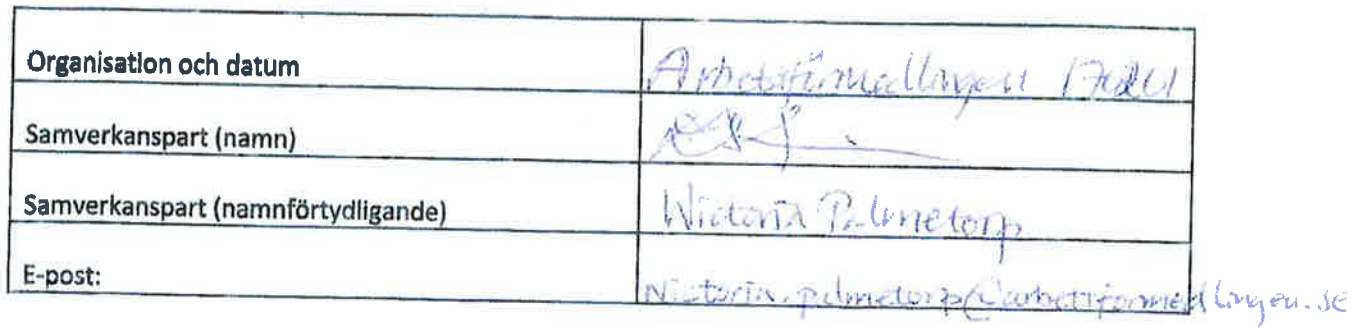 Organisation och datum Arbetsförmedlingen
Samverkanspart (namn)
Samverkanspart (namnförtydligande) Wictoria Palmetorp
E-post: wictoria.palmetorp@arbetsformedlingen.se